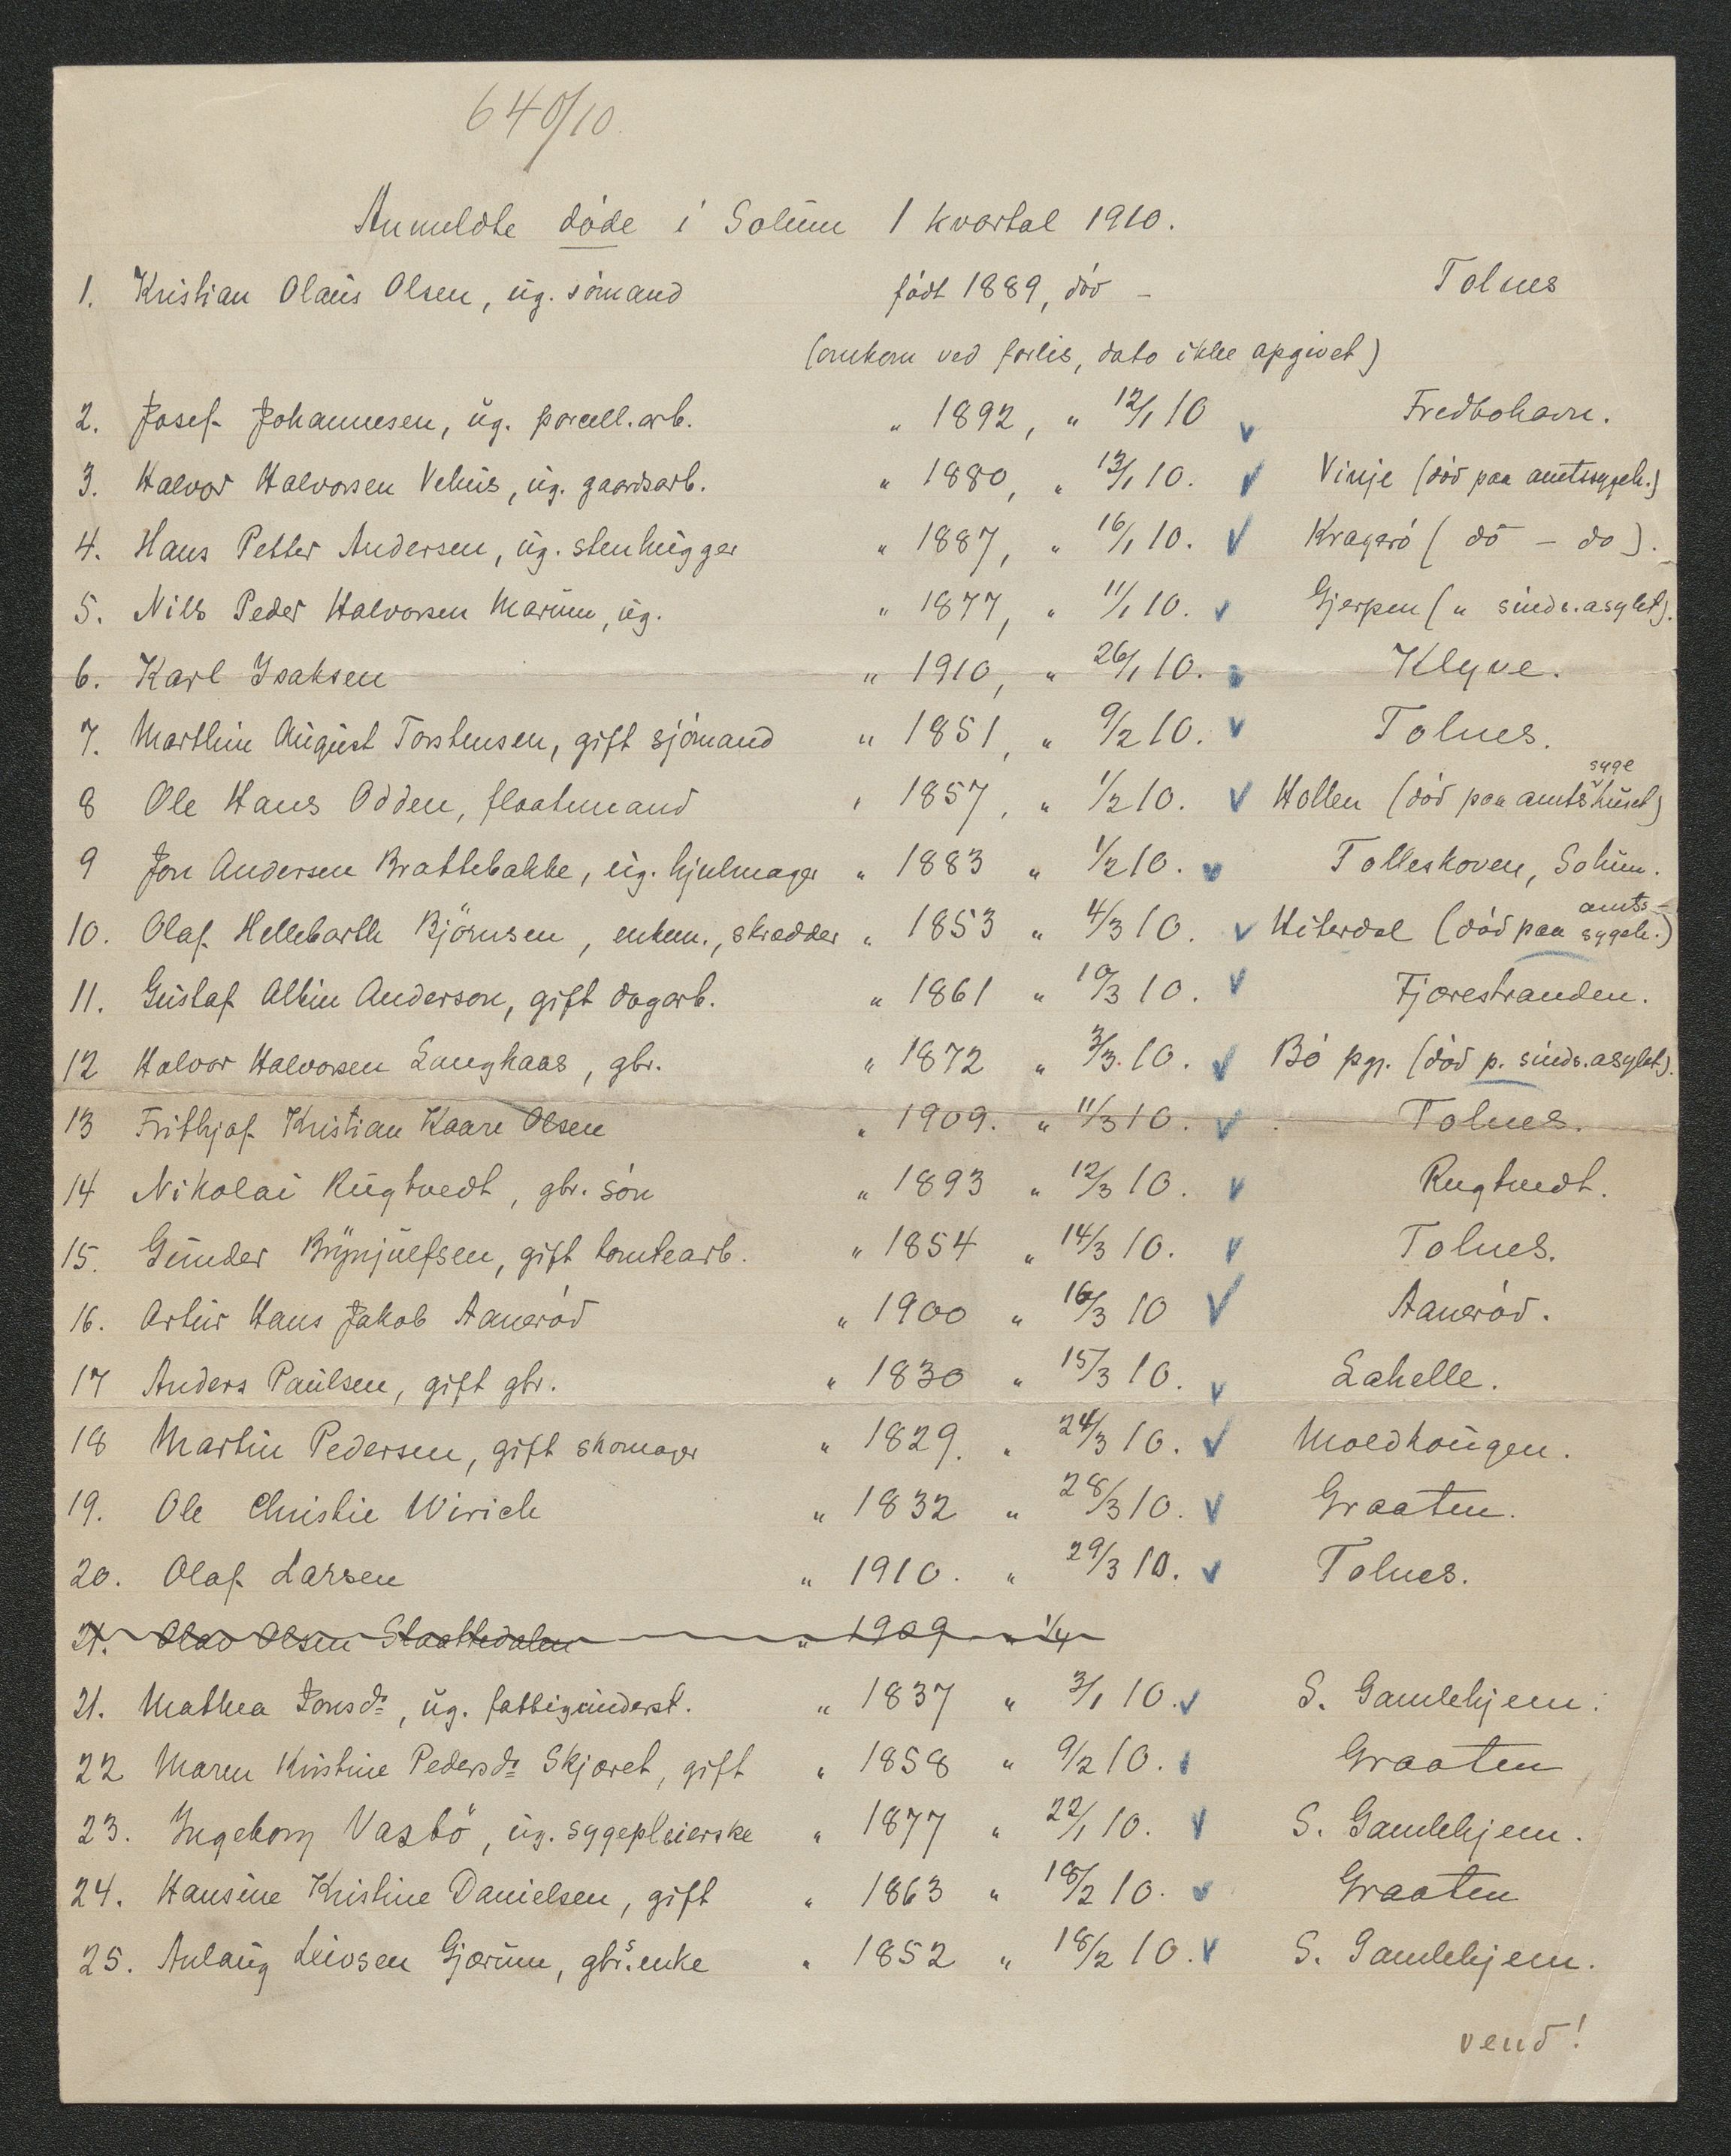 640/10.
Anmeldte døde i Solum 1 kvartal 1910.
1. Kristian Olaus Olsen, ug. sømand født 1889, død – Tolnes
(omkom ved forlis, dato ikke opgivet)
2. Josef Johannesen, ug. porcell.arb. " 1892, " 12/1 10 Fredbohavn.
3. Halvor Halvorsen Vehus, ug. gaardsarb. " 1880, " 13/1 10. Vinje (død paa amtssygeh.)
4. Hans Petter Andersen, ug. stenhugger " 1887, " 16/1 10. Kragerø ( do – do ).
5. Nils Peder Halvorsen Marum, ug. " 1877, " 11/1 10. Gjerpen ( " sinds.asylet).
6. Karl Isaksen " 1910, " 26/1 10. Klyve.
7. Marthin August Torstensen, gift sjømand " 1851, " 9/2 10. Tolnes.
8 Ole Hans Odden, flaatmand " 1857, " 1/2 10. Hollen (død paa amtssygehuset)
9 Jon Andersen Brattebakke, ug. hjulmager " 1883 " 1/2 10. Tolleskoven, Solum.
10. Olaf Hellebarth Björnsen, enkem., skrædder " 1853 " 4/3 10. Hiterdal (død paa amts-sygeh.)
11. Gustaf Albin Anderson, gift dagarb. " 1861 " 10/3 10. Fjærestranden.
12 Halvor Halvorsen Langkaas, gbr. " 1872 " 3/3. 10. Bø pgj. (død p. sinds.asylet).
13 Frithjof Kristian Kaare Olsen " 1909. " 11/3 10. Tolnes.
14 Nikolai Rugtvedt, gbr. søn " 1893 " 12/3 10. Rugtvedt.
15. Gunder Brynjulfsen, gift tomtearb. " 1854 " 14/3 10. Tolnes.
16. Artur Hans Jakob Aanerød " 1900 " 16/3 10 Aanerød.
17 Anders Paulsen, gift gbr. " 1830 " 15/3 10. Lahelle.
18 Martin Pedersen, gift skomager " 1829. " 24/3 10. Moldhaugen.
19. Ole Christie Wirich " 1832 " 28/3 10. Graaten.
20. Olaf Larsen " 1910. " 29/3 10. Tolnes.
21. Olav Olsen Slaattedalen " 1909 " 1/4
21. Mathea Jonsd:, ug. fattigunderst. " 1837 " 3/1 10. S. Gamlehjem.
22 Maren Kristine Pedersd: Skjæret, gift " 1858 " 9/2 10. Graaten
23. Ingeborg Vasbö, ug. sygepleierske " 1877 " 22/1 10. S. Gamlehjem.
24. Hansine Kristine Danielsen, gift " 1863 " 18/2 10. Graaten
25. Anlaug Leivsen Gjærum, gbr.s enke " 1852 " 18/2 10. S. Gamlehjem.
vend!